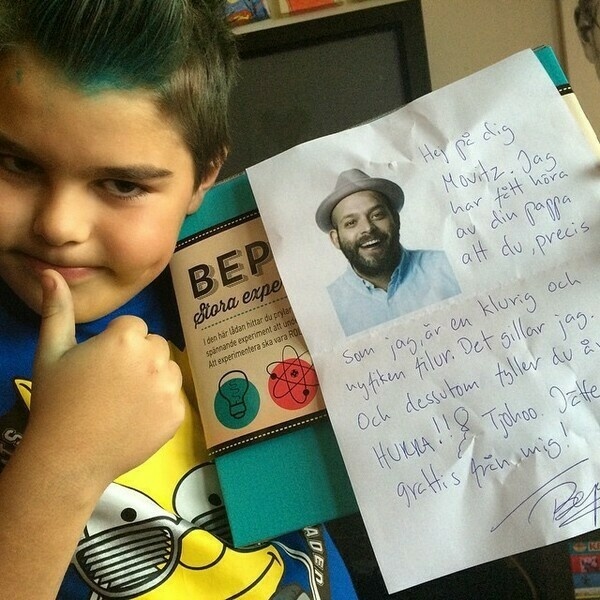 BEP
Stora expe
I den här lådan hittar du prylar
spännande experiment att und
Att experimentera ska vara RO
Hej på dig
Movitz. Jag
har fått höra
av din pappa
att du, precis
som jag, är en klurig och
nyfiken filur. Det gillar jag.
Och dessutom fyller du å
HURRA!!! Tjohoo. Jätte
grattis från mig!
Bep
ADED